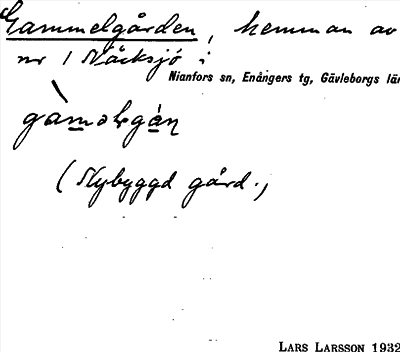 Gammelgården, hemman av
nr 1 Näcksjö i
Nianfors sn, Enångers tg, Gävleborgs län
(Nybyggd gård.)
LARS LARSSON 1932